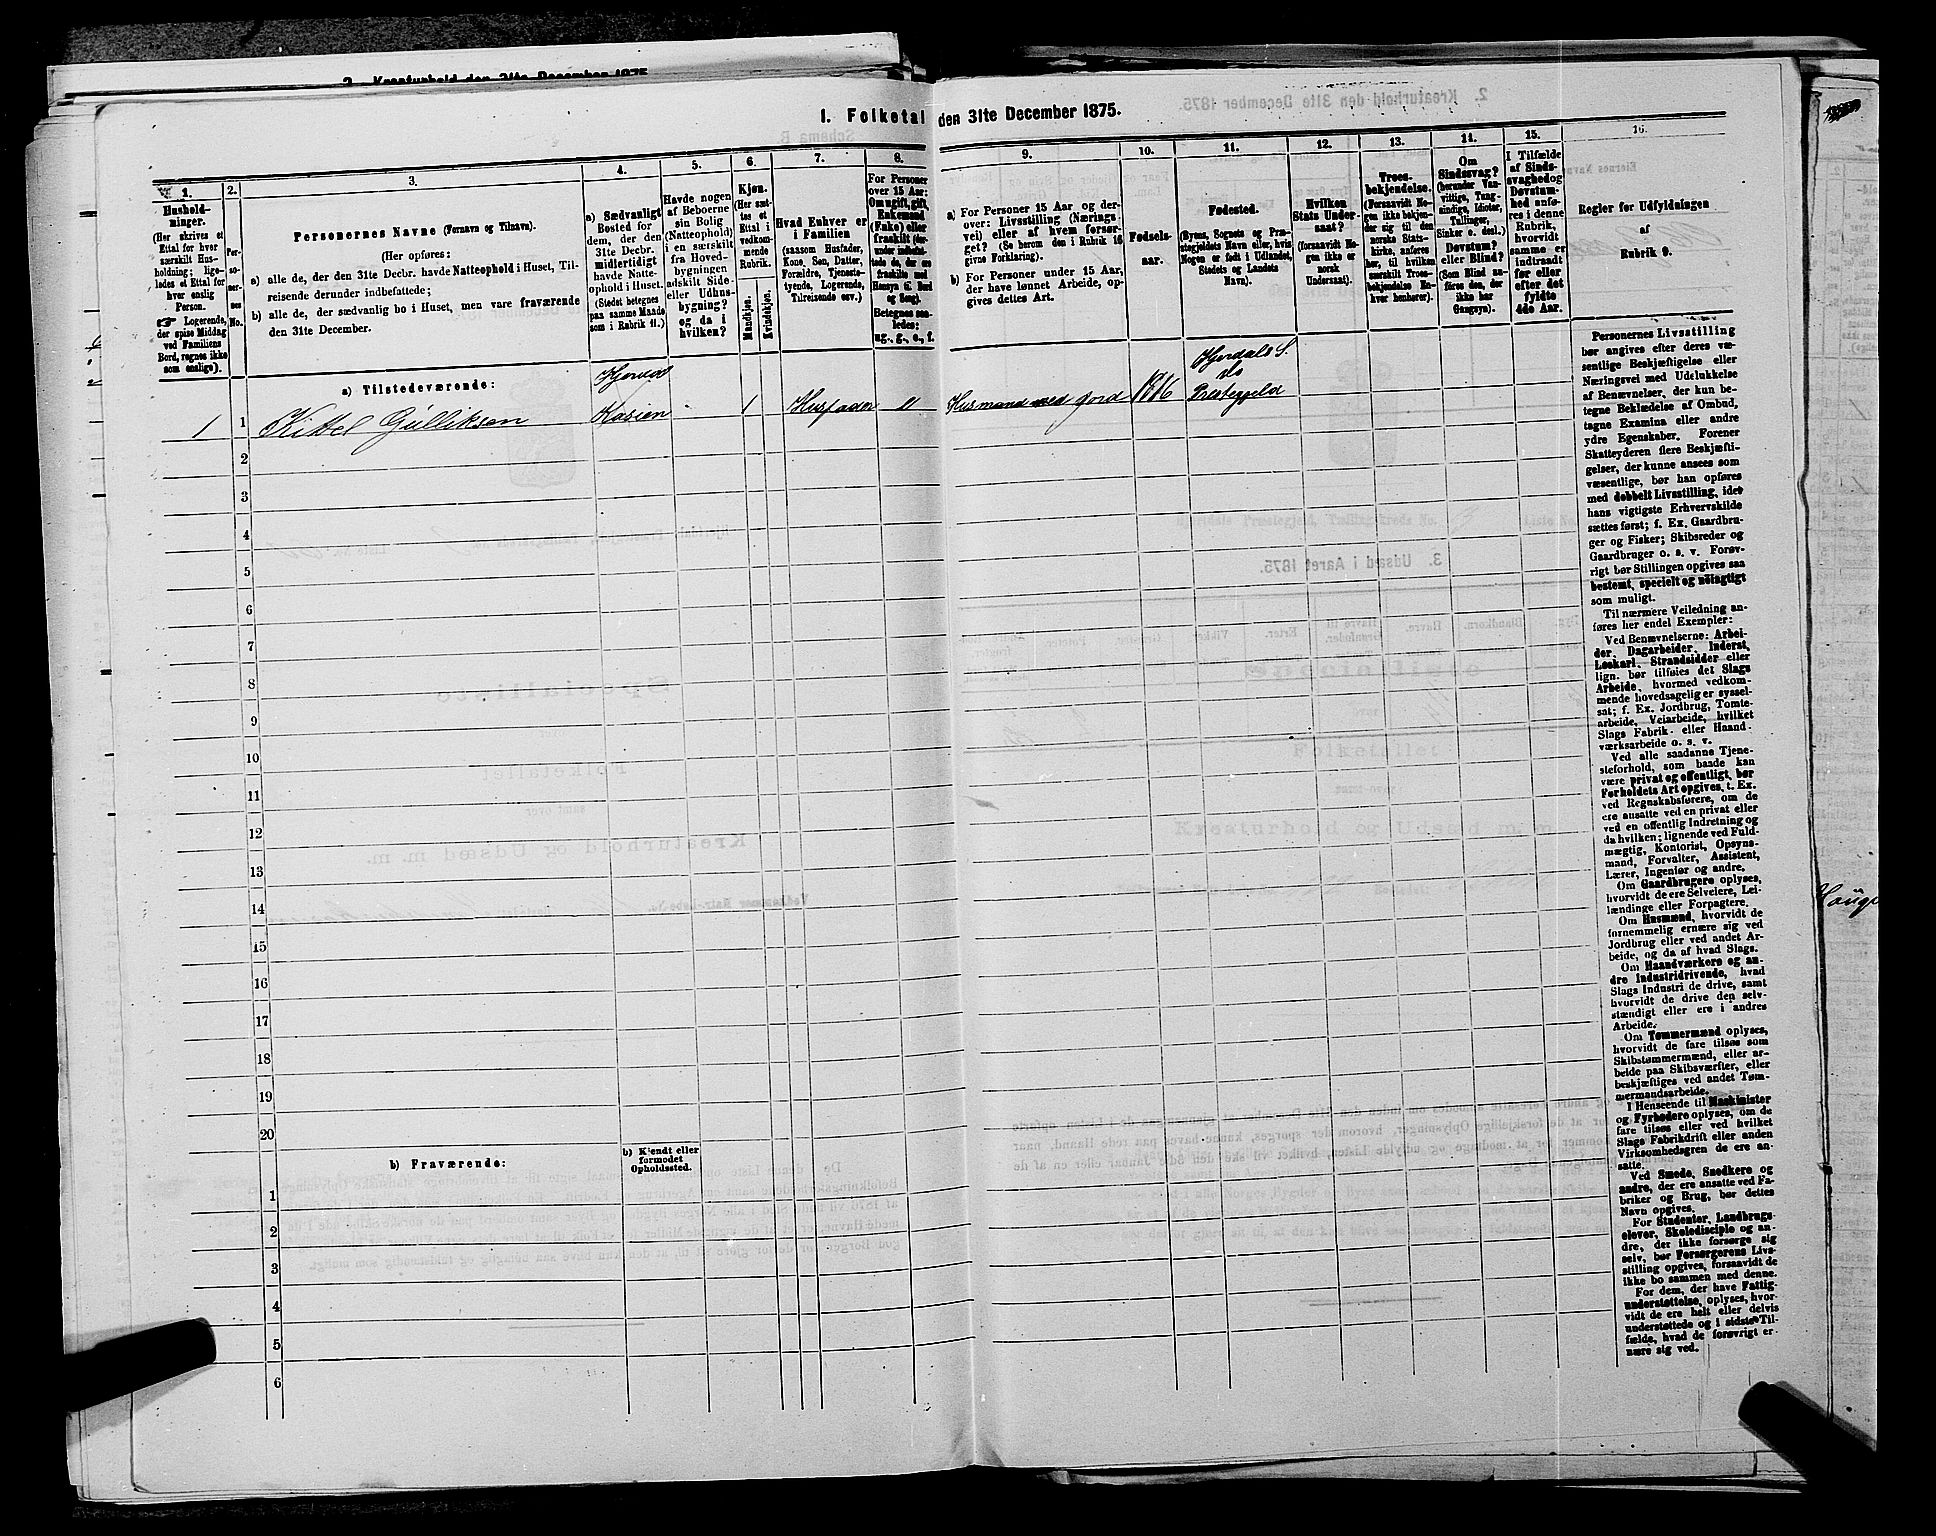 2. Kreaturhold den 31te December 1875.
1. Folketal den 31te December 1875.
1. 2. 3. 4. 5. 6. 7. 8. 9. 10. 11. 12. 13. 14. 15. 16.
Hushold-
ninger.
(Her skrives et
Ettal for hver
særskilt Hus-
holdning; lige-
ledes et Ettal for
hver enslig
Person.
☞ Logerende,
der spise Middag
ved Familiens
Bord, regnes ikke
som enslige).
Per-
so-
ner-
nes
No.
Personernes Navne (Fornavn og Tilnavn).
(Her opføres:
a) alle de, der den 31te Decbr. havde Natteophold i Huset, Til-
reisende derunder indbefattede;
b) alle de, der sædvanlig bo i Huset, men vare fraværende
den 31te December.
a) Sædvanligt
Bosted for
dem, der den
31te Decbr.
midlertidigt
havde Natte-
ophold i Huset.
(Stedet betegnes
paa samme Maade
som i Rubrik 11.)
Havde nogen
af Beboerne
sin Bolig
(Natteophold)
i en særskilt
fra Hoved-
bygningen
adskilt Side-
eller Udhus-
bygning?
og da i
hvilken?
Kjøn.
(Her sæt-
tes et
Ettal i
vedkom-
mende
Rubrik.
Mandkjøn.
Kvindekjøn.
Hvad Enhver er
i Familien
(saasom Husfader,
Kone, Søn, Datter,
Forældre, Tjeneste-
tyende, Logerende,
Tilreisende osv.)
For Personer
over 15 Aar:
Om ugift, gift,
Enkemand
(Enke) eller
fraskilt (der-
under indbefat-
tede de, der ere
fraskilte med
Hensyn til Bord
og Seng).
Betegnes saa-
ledes:
ug., g., e., f.
a) For Personer 15 Aar og der-
over: Livsstilling (Nærings-
vei) eller af hvem forsør-
get? (Se herom den i Rubrik 16
givne Forklaring).
b) For Personer under 15 Aar,
der have lønnet Arbeide, op-
gives dettes Art.
Fødsels-
aar.
Fødested.
(Byens, Sognets og Præ-
stegjeldets Navn eller, hvis
Nogen er født i Udlandet,
Stedets og Landets
Navn).
Hvilken
Stats Under-
saat?
(forsaavidt No-
gen ikke er
norsk
Undersaat).
Troes-
bekjendelse.
(Forsaavidt No-
gen ikke bekjen-
der sig til den
norske Stats-
kirke, anføres
her, til hvilken
særskilt Troes-
bekjendelse En-
hver henhører).
Om
Sindssvag?
(herunder Van-
vittige, Tung-
sindige, Idioter,
Tullinger,
Sinker o. desl.)
Døvstum?
eller Blind?
(Som Blind an-
føres den, der
ikke har
Gangsyn).
I Tilfælde
af Sinds-
svaghed og
Døvstum-
hed anfø-
res i denne
Rubrik,
hvorvidt
samme er
indtraadt
før eller
efter det
fyldte
4de Aar.
Regler for Udfyldningen
af
Rubrik 9.
a) Tilstedeværende:
1 1 Kittel Gulliksen Hjerdal Kasien 1 Husfader Husmand med Jord 1816 Hjerdals S. do Præstegjeld
2
3
4
5
6
7
8
9
10
11
12
13
14
15
16
17
18
19
20
b) Fraværende:
b) Kjendt eller
formodet
Opholdssted.
1
2
3
4
5
6
Personernes Livsstilling
bør angives efter deres væ-
sentlige Beskjæftigelse eller
Næringsvei med Udelukkelse
af Benævnelser, der kun be-
tegne Beklædelse af Ombud,
tagne Examina eller andre
ydre Egenskaber. Forener
Skatteyderen flere Beskjæfti-
gelser, der kunne ansees som
væsentlige, bør han opføres
med dobbelt Livsstilling, idet
hans vigtigste Erhvervskilde
sættes først; f. Ex. Gaardbru-
ger og Fisker; Skibsreder og
Gaardbruger o. s. v. Forøv-
rigt bør Stillingen opgives saa
bestemt, specielt og nøiagtigt
som muligt.
Til nærmere Veiledning an-
føres her endel Exempler:
Ved Benævnelserne: Arbei-
der, Dagarbeider, Inderst,
Løskarl, Strandsidder eller
lign. bør tilføies det Slags
Arbeide, hvormed vedkom-
mende hovedsagelig er syssel-
sat; f. Ex. Jordbrug, Tomte-
arbeide, Veiarbeide, hvilket
Slags Fabrik- eller Haand-
værksarbeide o. s. v.
Ved alle saadanne Tjene-
steforhold, som baade kan
være privat og offentligt, bør
Forholdets Art opgives, t. Ex.
ved Regnskabsførere, om de
ere ansatte ved en privat eller
ved en offentlig Indretning og
da hvilken; lignende ved Fuld-
mægtig, Kontorist, Opsyns-
mand, Forvalter, Assistent,
Lærer, Ingeniør og andre.
Om Gaardbrugere oplyses,
hvorvidt de ere Selveiere, Lei-
lændinge eller Forpagtere.
Om Husmænd, hvorvidt de
fornemmelig ernære sig ved
Jordbrug eller ved andet Ar-
beide, og da af hvad Slags.
Om Haandværkere og an-
dre Industridrivende, hvad
Slags Industri de drive, samt
hvorvidt de drive den selv-
stændigt eller ere i andres
Arbeide.
Om Tømmermænd oplyses,
hvorvidt de fare tilsøs som
Skibstømmermænd, eller ar-
beide paa Skibsværfter, eller
beskjæftiges ved andet Tøm-
mermandsarbeide.
I Henseende til Maskinister
og Fyrbødere oplyses, om de
fare tilsøs eller ved hvilket
Slags Fabrikdrift eller anden
Virksomhedsgren de ere an-
satte.
Ved Smede, Snedkere og
andre, der ere ansatte ved Fa-
briker og Brug, bør dettes
Navn opgives.
For Studenter, Landbrugs-
elever, Skoledisciple og an-
dre, der ikke forsørge sig
selv, bør Forsørgerens Livs-
stilling opgives, forsaavidt de
ikke bo sammen med denne.
For dem, der have Fattig-
understøttelse, oplyses, hvor-
vidt de ere helt eller delvis
understøttede og i sidste Til-
fælde, hvad de forøvrigt er-
nære sig ved.